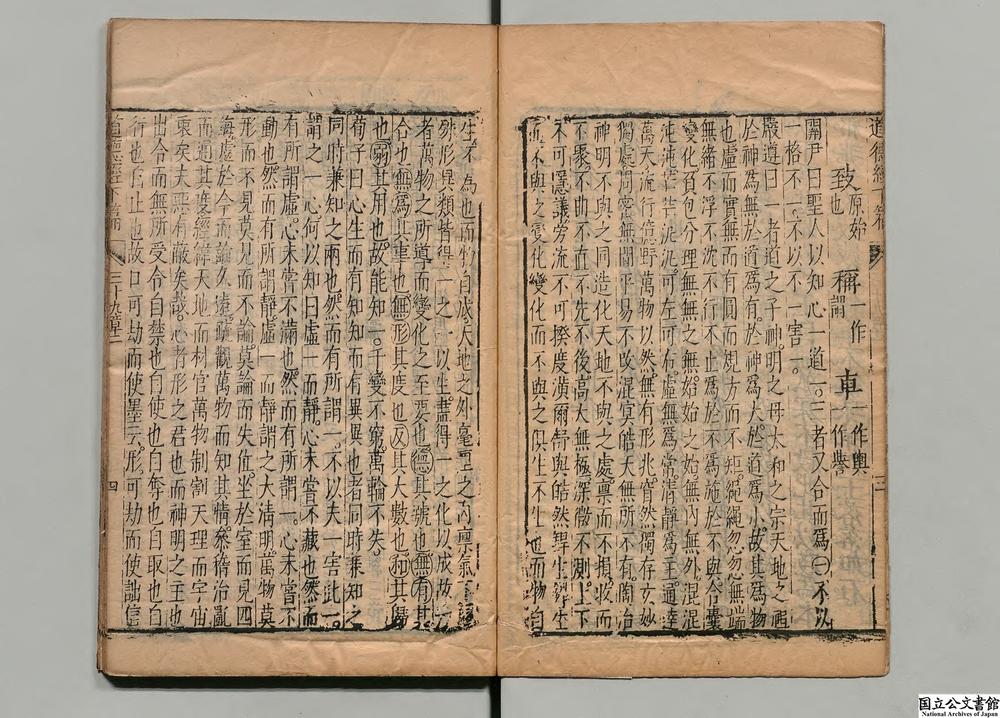 道德經下篇
三
致 原始也 稱 一作謂 車 一作輿 一作譽
關尹曰聖人以知心一道一二者又合而為一不以
一格不一不以不一害一
嚴遵曰一者道之子神明之母太和之宗天地之祖
於神為無於道為有於神為大於道為小故其為物
也虛而實無而有圓而規方而不矩繩繩忽忽無端
無緒不浮不沉不行不止為於不為施於不與合囊
變化負包分理無無之無始始之始無內無外混混
沌沌芒芒泛泛可左可右虛無為常清靜為主通達
萬天流行億野萬物以然無有形兆窅然獨存玄妙
獨處周密無間平易不改混冥皓天無所不有陶冶
神明不與之同造化天地不與之處稟而不損收而
不聚不曲不直不先不後高大無極深微不測上下
不可隱議旁流不可揆度潢爾舒與皓然銲生銲生
而不與之變化變化而不與之俱生不生也而物自
生不為也而物自成天地之外毫釐之內稟氣不同
殊形異類皆得一之一以生盡得一之化以成故一
者萬物之所導而變化之至要也德其號也無有其
舍也無為其事也無形其度也反其大數也和其歸
也弱其用也故能知一千變不窮萬輪不失
荀子曰心生而有知知而有異異也者同時兼知之
同時兼知之兩也然而有所謂一不以夫一害此一
謂之一心何以知曰虛一而靜心未嘗不藏也然而
有所謂虛心未嘗不滿也然而有所謂一心未嘗不
動也然而有所謂靜虛一而靜謂之大清明萬物莫
形而不見莫見而不論莫論而失位坐於室而見四
海處於今而論久遠疏觀萬物而知其情參稽治亂
而通其度經緯天地而材官萬物制割大理而宇宙
裏矣夫惡有蔽矣哉心者形之君也而神明之主也
出令而無所受令自禁也自使也自奪也自取也自
行也自止也故口可劫而使墨云形可劫而使詘信
道德經下篇
三十九章二
四
国立公文書館
National Archives of Japan